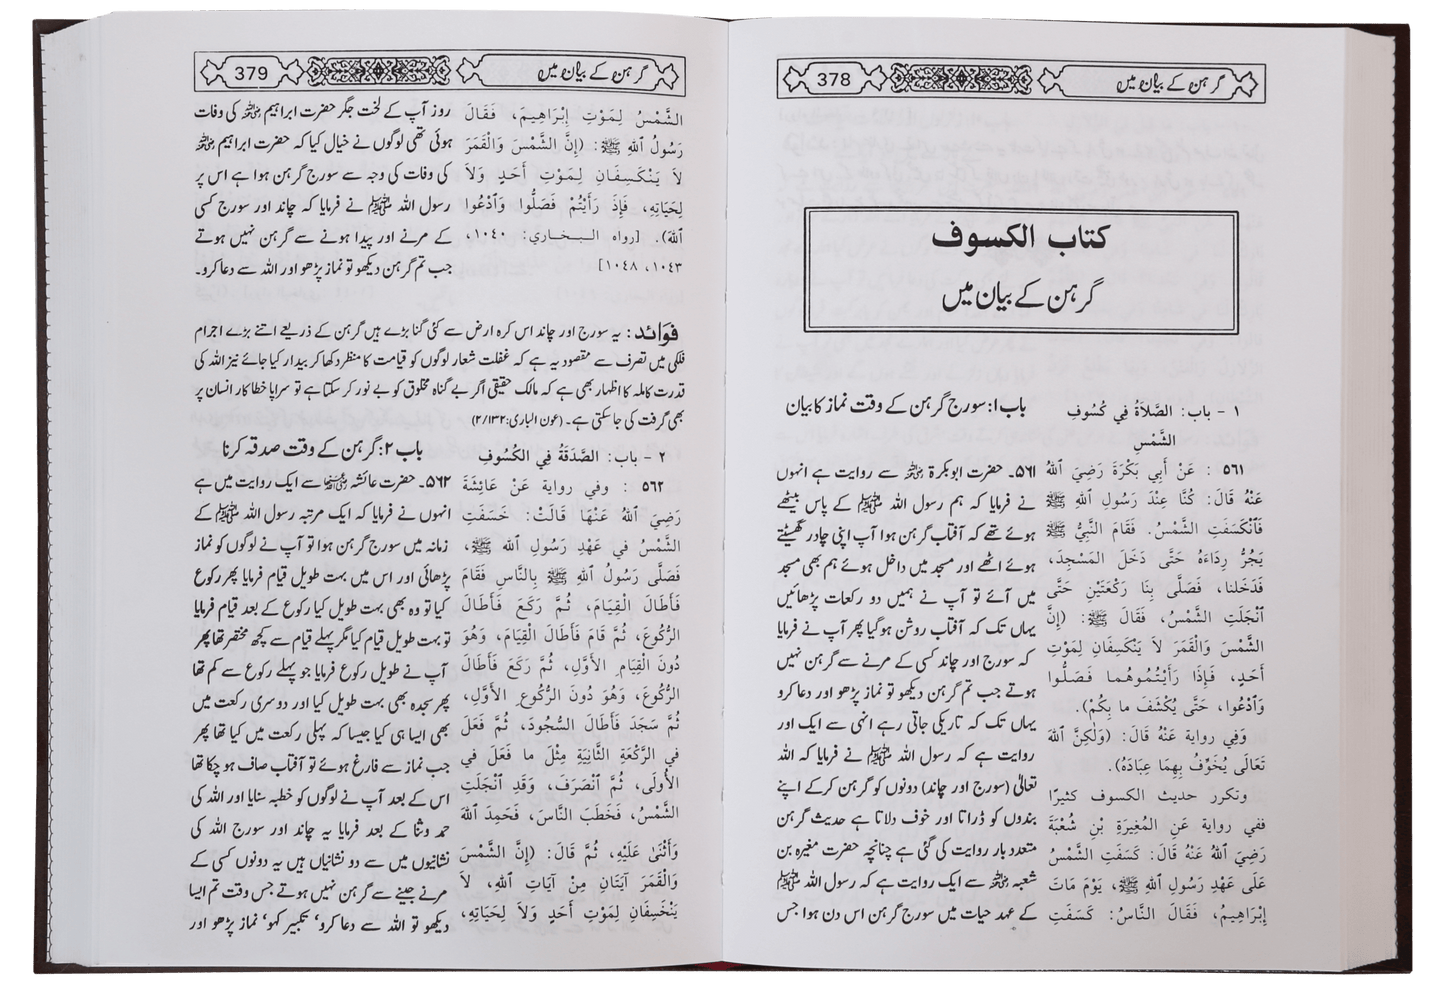 گرہن کے بیان میں
378
كتاب الكسوف
گرہن کے بیان میں
١ - باب: الصَّلاَةُ فِي كُسُوفِ
الشَّمْسِ
٥٦١ : عَنْ أَبِي بَكْرَةَ رَضِيَ ٱللهُ
عَنْهُ قَالَ: كُنَّا عِنْدَ رَسُولِ ٱللهِ ﷺ
فَٱنْكَسَفَتِ الشَّمْسُ. فَقَامَ النَّبِيُّ ﷺ
يَجُرُّ رِدَاءَهُ حَتَّى دَخَلَ المَسْجِدَ،
فَدَخَلنا، فَصَلَّى بِنَا رَكْعَتَيْنِ حَتَّى
ٱنْجَلَتِ الشَّمْسُ، فَقَالَ ﷺ: (إِنَّ
الشَّمْسَ وَالْقَمَرَ لاَ يَنْكَسِفَانِ لِمَوْتِ
أَحَدٍ، فَإِذَا رَأَيْتُمُوهُما فَصَلُّوا
وَٱدْعُوا، حَتَّى يُكْشَفَ ما بِكُمْ).
وَفِي رواية عَنْهُ قَالَ: (وَلٰكِنَّ ٱللهَ
تَعَالَى يُخَوِّفُ بِهِمَا عِبَادَهُ).
وتكرر حديث الكسوف كثيرًا
ففي رواية عَنِ المُغِيرَةِ بْنِ شُعْبَةَ
رَضِيَ ٱللهُ عَنْهُ قَالَ: كَسَفَتِ الشَّمْسُ
عَلَى عَهْدِ رَسُولِ ٱللهِ ﷺ، يَوْمَ مَاتَ
إِبْرَاهِيمُ، فَقَالَ النَّاسُ: كَسَفَتِ
باب ۱: سورج گرہن کے وقت نماز کا بیان
۵۶۱۔ حضرت ابوبکرۃ ؓ سے روایت ہے انہوں
نے فرمایا کہ ہم رسول اللہ ﷺ کے پاس بیٹھے
ہوئے تھے کہ آفتاب گرہن ہوا آپ اپنی چادر گھسیٹتے
ہوئے اٹھے اور مسجد میں داخل ہوئے ہم بھی مسجد
میں آئے تو آپ نے ہمیں دو رکعات پڑھائیں
یہاں تک کہ آفتاب روشن ہوگیا پھر آپ نے فرمایا
کہ سورج اور چاند کسی کے مرنے سے گرہن نہیں
ہوتے جب تم گرہن دیکھو تو نماز پڑھو اور دعا کرو
یہاں تک کہ تاریکی جاتی رہے انہی سے ایک اور
روایت ہے کہ رسول اللہ ﷺ نے فرمایا کہ اللہ
تعالیٰ (سورج اور چاند) دونوں کو گرہن کرکے اپنے
بندوں کو ڈراتا اور خوف دلاتا ہے حدیث گرہن
متعدد بار روایت کی گئی ہے چنانچہ حضرت مغیرہ بن
شعبہ ؓ سے ایک روایت ہے کہ رسول اللہ ﷺ
کے عہد حیات میں سورج گرہن اس دن ہوا جس
گرہن کے بیان میں
379
الشَّمْسُ لِمَوْتِ إِبْرَاهِيمَ، فَقَالَ
رَسُولُ ٱللهِ ﷺ: (إِنَّ الشَّمْسَ وَالْقَمَرَ
لاَ يَنْكَسِفَانِ لِمَوْتِ أَحَدٍ وَلاَ
لِحَيَاتِهِ، فَإِذَ رَأَيْتُمْ فَصَلُّوا وَٱدْعُوا
ٱللهَ). [رواه البخاري: ١٠٤٠،
١٠٤٣، ١٠٤٨]
روز آپ کے لخت جگر حضرت ابراہیم ؓ کی وفات
ہوئی تھی لوگوں نے خیال کیا کہ حضرت ابراہیم ؓ
کی وفات کی وجہ سے سورج گرہن ہوا ہے اس پر
رسول اللہ ﷺ نے فرمایا کہ چاند اور سورج کسی
کے مرنے اور پیدا ہونے سے گرہن نہیں ہوتے
جب تم گرہن دیکھو تو نماز پڑھو اور اللہ سے دعا کرو۔
فوائد: یہ سورج اور چاند اس کرہ ارض سے کئی گنا بڑے ہیں گرہن کے ذریعے اتنے بڑے اجرام
فلکی میں تصرف سے مقصود یہ ہے کہ غفلت شعار لوگوں کو قیامت کا منظر دکھا کر بیدار کیا جائے نیز اللہ کی
قدرت کاملہ کا اظہار بھی ہے کہ مالک حقیقی اگر بے گناہ مخلوق کو بے نور کر سکتا ہے تو سراپا خطا کار انسان پر
بھی گرفت کی جا سکتی ہے۔ (عون الباری: ۲/۱۳۲)
٢ - باب: الصَّدَقَةُ فِي الكُسُوفِ
٥٦٢ : وفي رواية عَنْ عَائِشَةَ
رَضِيَ ٱللهُ عَنْهَا قَالَتْ: خَسَفَتِ
الشَّمْسُ في عَهْدِ رَسُولِ ٱللهِ ﷺ،
فَصَلَّى رَسُولُ ٱللهِ ﷺ بِالنَّاسِ فَقَامَ
فَأَطَالَ الْقِيَامَ، ثُمَّ رَكَعَ فَأَطَالَ
الرُّكُوعَ، ثُمَّ قَامَ فَأَطَالَ الْقِيَامَ، وَهُوَ
دُونَ الْقِيَامِ الأَوَّلِ، ثُمَّ رَكَعَ فَأَطَالَ
الرُّكُوعَ، وَهُوَ دُونَ الرُّكُوعِ الأَوَّلِ،
ثُمَّ سَجَدَ فَأَطَالَ السُّجُودَ، ثُمَّ فَعَلَ
في الرَّكْعَةِ الثَّانِيَةِ مِثْلَ ما فَعَلَ في
الأُولَى، ثُمَّ ٱنْصَرَفَ، وَقَدِ ٱنْجَلَتِ
الشَّمْسُ، فَخَطَبَ النَّاسَ، فَحَمِدَ ٱللهَ
وَأَثْنَى عَلَيْهِ، ثُمَّ قَالَ: (إِنَّ الشَّمْسَ
وَالْقَمَرَ آيَتَانِ مِنْ آيَاتِ ٱللهِ، لاَ
يَنْخَسِفَانِ لِمَوْتِ أَحَدٍ وَلاَ لِحَيَاتِهِ،
باب ۲: گرہن کے وقت صدقہ کرنا
۵۶۲۔ حضرت عائشہ ؓ سے ایک روایت میں ہے
انہوں نے فرمایا کہ ایک مرتبہ رسول اللہ ﷺ کے
زمانہ میں سورج گرہن ہوا تو آپ نے لوگوں کو نماز
پڑھائی اور اس میں بہت طویل قیام فرمایا پھر رکوع
کیا تو وہ بھی بہت طویل کیا رکوع کے بعد قیام فرمایا
تو بہت طویل قیام کیا مگر پہلے قیام سے کچھ مختصر تھا پھر
آپ نے طویل رکوع فرمایا جو پہلے رکوع سے کم تھا
پھر سجدہ بھی بہت طویل کیا اور دوسری رکعت میں
بھی ایسا ہی کیا جیسا کہ پہلی رکعت میں کیا تھا پھر
جب نماز سے فارغ ہوئے تو آفتاب صاف ہو چکا تھا
اس کے بعد آپ نے لوگوں کو خطبہ سنایا اور اللہ کی
حمد وثنا کے بعد فرمایا یہ چاند اور سورج اللہ کی
نشانیوں میں سے دو نشانیاں ہیں یہ دونوں کسی کے
مرنے جینے سے گرہن نہیں ہوتے جس وقت تم ایسا
دیکھو تو اللہ سے دعا کرو‘ تکبیر کہو‘ نماز پڑھو اور